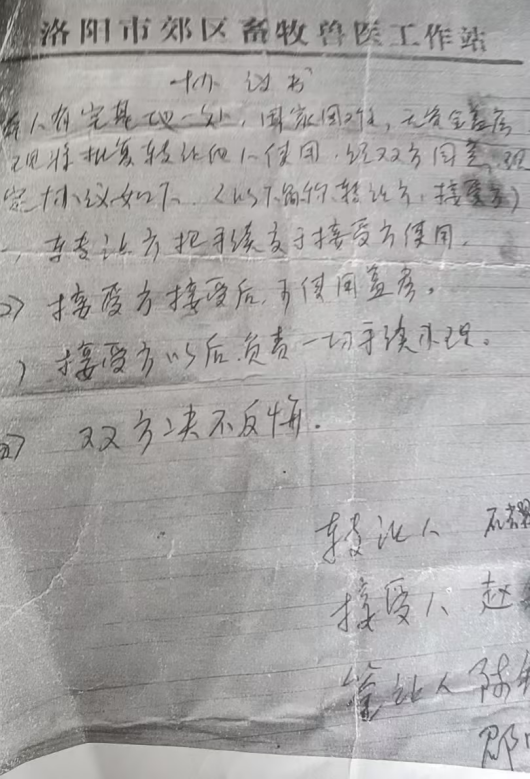 洛阳市郊区畜牧兽医工作站
协议书
有宅基地一处，因家困难，无资金盖房
现将批复转让他人使用，经双方同意，现
定协议如下。（以下简称转让方，接受方）
一，转让方把手续交于接受方使用。
2）接受方接受后，可使用盖房。
）接受方以后负责一切手续办理。
双方决不反悔。
转让人
接受人 赵
人 陈